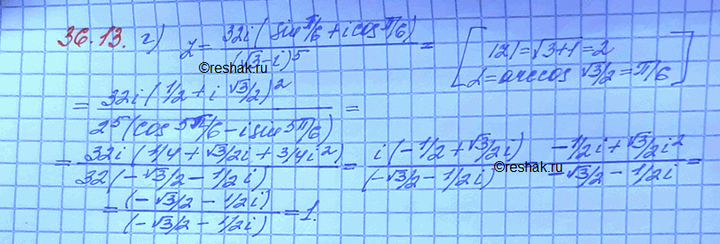 36.13. г) z = 32i(sin π/6 + i cos π/6) / (√3 - i)^5 = [ |z| = √3+1 = 2
α = arccos √3/2 = π/6 ]
©reshak.ru
= 32i(1/2 + i √3/2)^2 / 2^5(cos 5π/6 - i sin 5π/6) =
= 32i(1/4 + √3/2i + 3/4i^2) / 32(-√3/2 - 1/2i) = i(-1/2 + √3/2i) / (-√3/2 - 1/2i) -1/2i + √3/2i^2 / -√3/2 - 1/2i =
©reshak.ru
= (-√3/2 - 1/2i) / (-√3/2 - 1/2i) = 1.
©reshak.ru